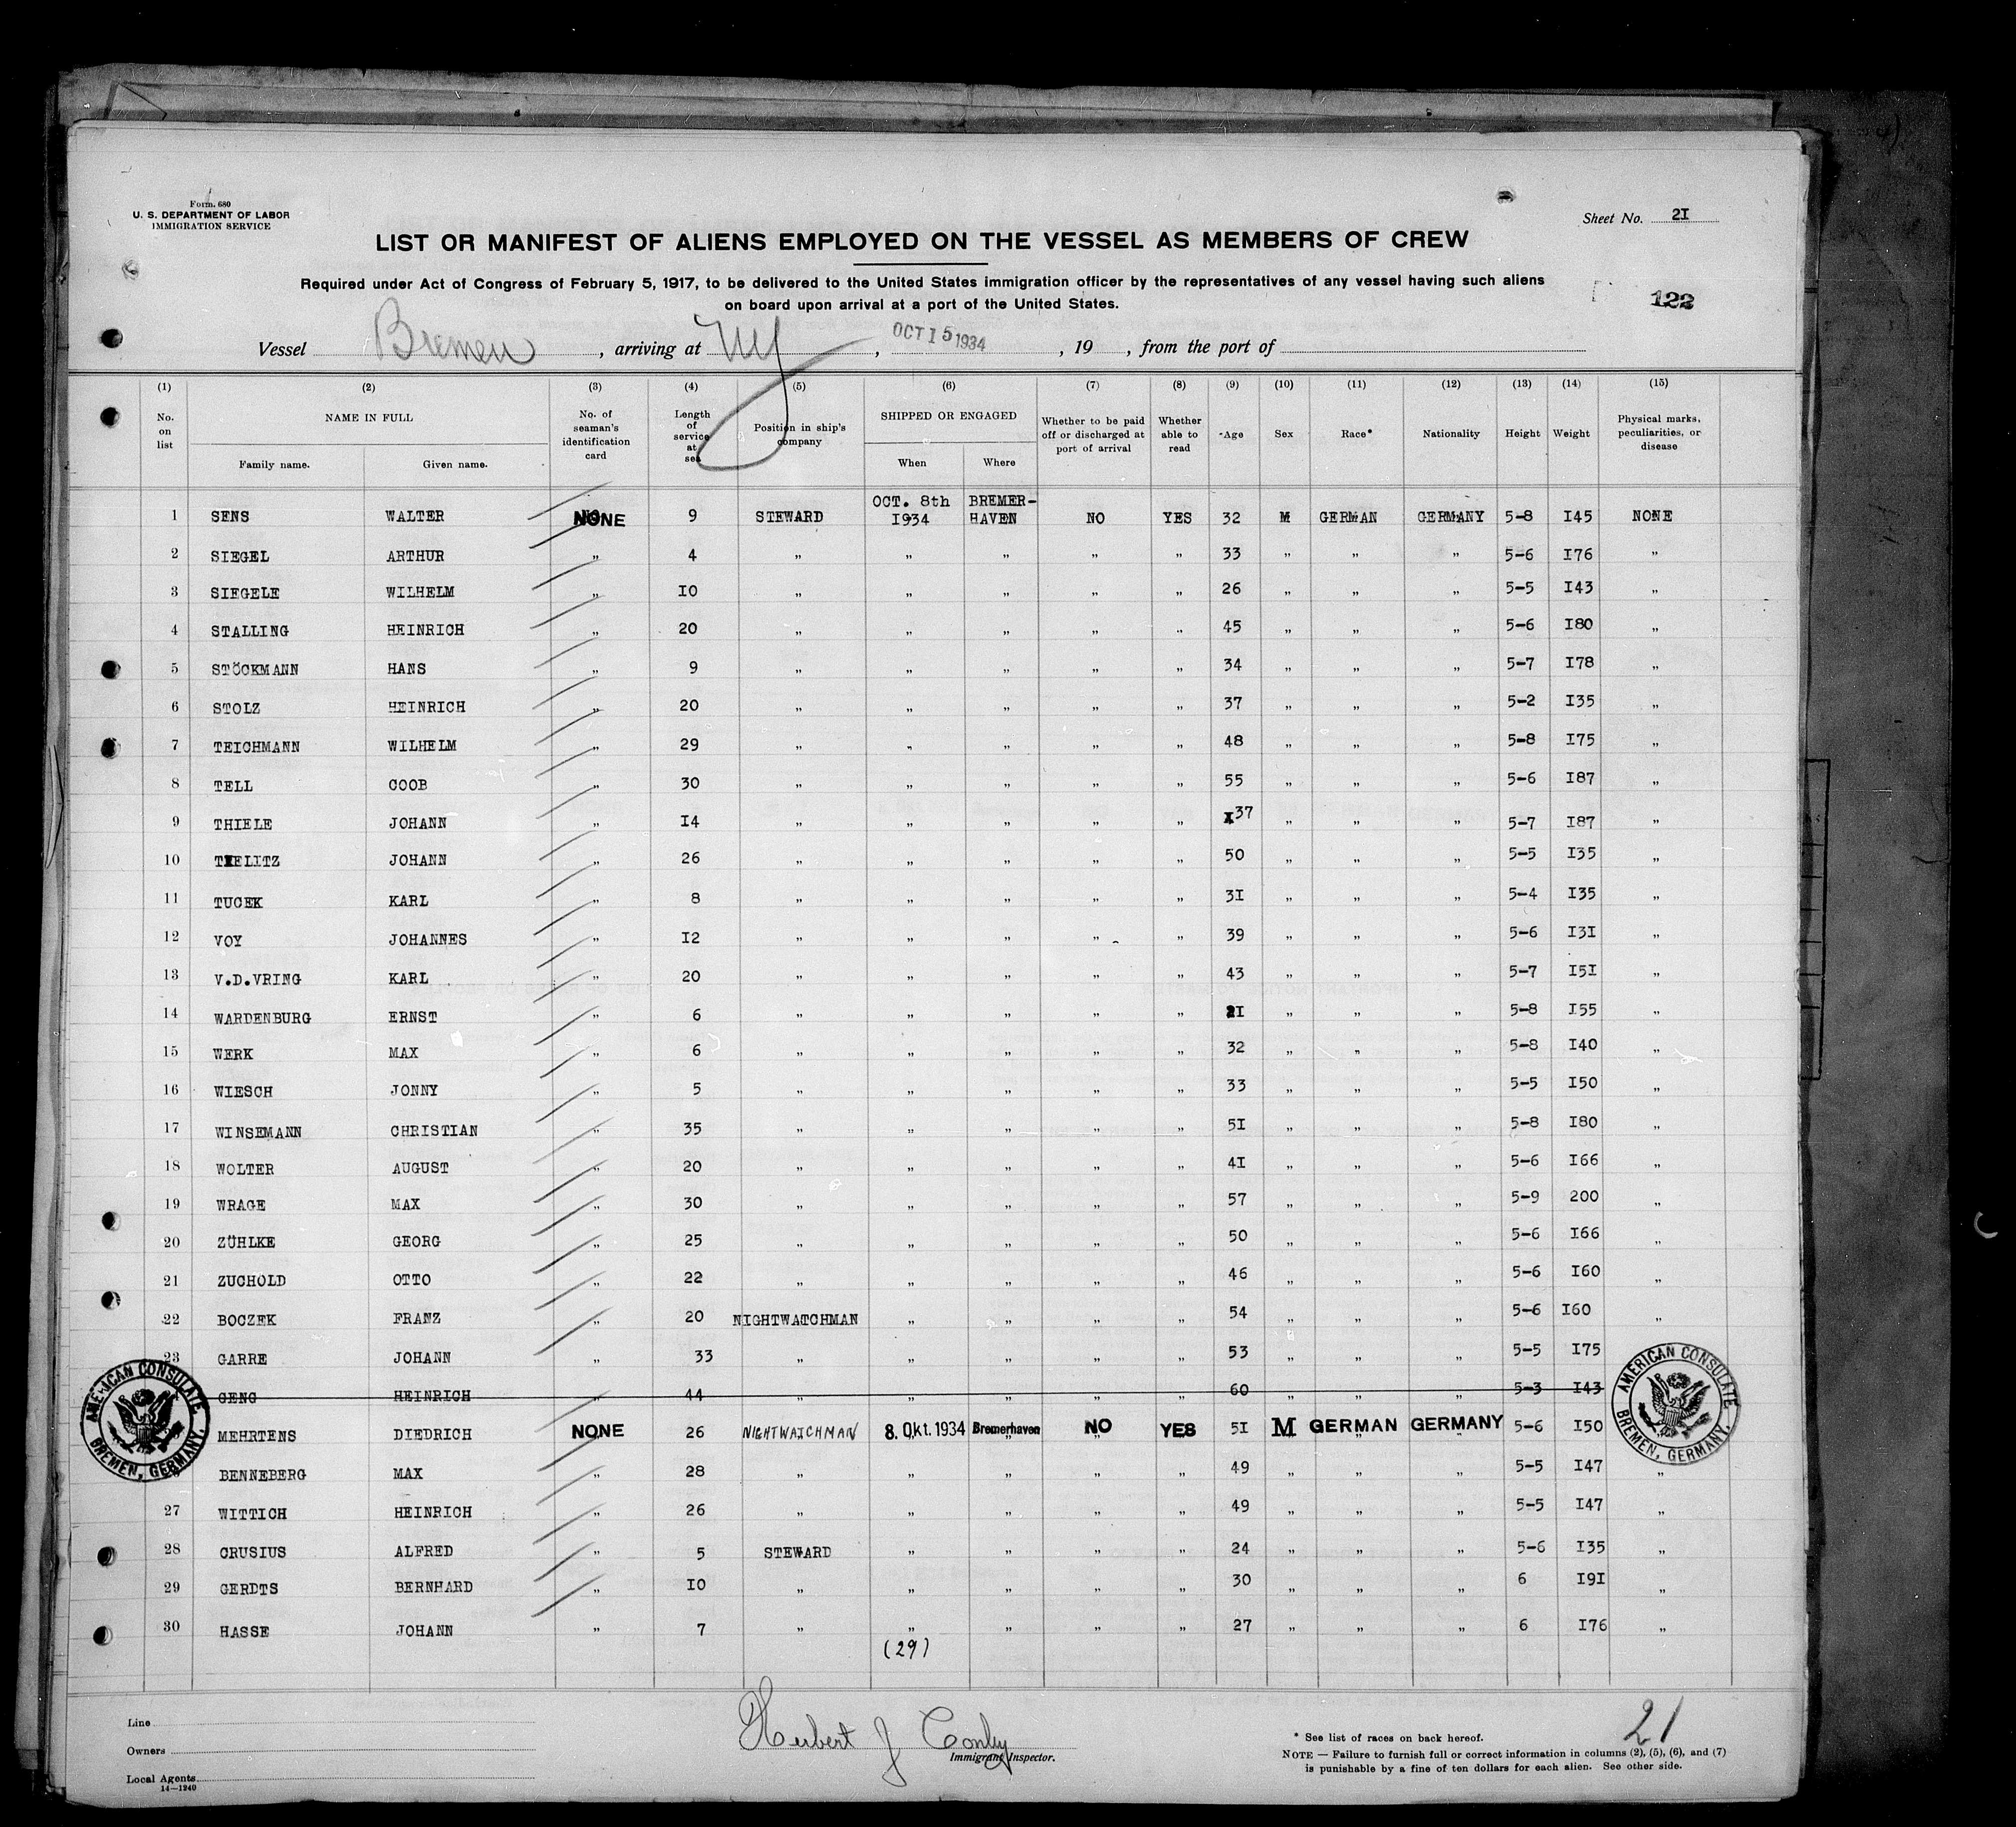 Form. 680
U. S. DEPARTMENT OF LABOR
IMMIGRATION SERVICE
Sheet No. 2I
LIST OR MANIFEST OF ALIENS EMPLOYED ON THE VESSEL AS MEMBERS OF CREW
Required under Act of Congress of February 5, 1917, to be delivered to the United States immigration officer by the representatives of any vessel having such aliens
on board upon arrival at a port of the United States.
122
Vessel Bremen, arriving at NY, OCT 15 1934, 19 , from the port of
(1) (2) (3) (4) (5) (6) (7) (8) (9) (10) (11) (12) (13) (14) (15)
No. on list NAME IN FULL Family name. Given name. No. of seaman's identification card Length of service at sea Position in ship's company SHIPPED OR ENGAGED When Where Whether to be paid off or discharged at port of arrival Whether able to read Age Sex Race* Nationality Height Weight Physical marks, peculiarities, or disease
1 SENS WALTER NONE 9 STEWARD OCT. 8th I934 BREMER-HAVEN NO YES 32 M GERMAN GERMANY 5-8 I45 NONE
2 SIEGEL ARTHUR " 4 " " " " " 33 " " " 5-6 I76 "
3 SIEGELE WILHELM " IO " " " " " 26 " " " 5-5 I43 "
4 STALLING HEINRICH " 20 " " " " " 45 " " " 5-6 I80 "
5 STÖCKMANN HANS " 9 " " " " " 34 " " " 5-7 I78 "
6 STOLZ HEINRICH " 20 " " " " " 37 " " " 5-2 I35 "
7 TEICHMANN WILHELM " 29 " " " " " 48 " " " 5-8 I75 "
8 TELL COOB " 30 " " " " " 55 " " " 5-6 I87 "
9 THIELE JOHANN " I4 " " " " " 37 " " " 5-7 I87 "
10 TIELITZ JOHANN " 26 " " " " " 50 " " " 5-5 I35 "
11 TUCEK KARL " 8 " " " " " 3I " " " 5-4 I35 "
12 VOY JOHANNES " I2 " " " " " 39 " " " 5-6 I3I "
13 V.D.VRING KARL " 20 " " " " " 43 " " " 5-7 I5I "
14 WARDENBURG ERNST " 6 " " " " " 2I " " " 5-8 I55 "
15 WERK MAX " 6 " " " " " 32 " " " 5-8 I40 "
16 WIESCH JONNY " 5 " " " " " 33 " " " 5-5 I50 "
17 WINSEMANN CHRISTIAN " 35 " " " " " 5I " " " 5-8 I80 "
18 WOLTER AUGUST " 20 " " " " " 4I " " " 5-6 I66 "
19 WRAGE MAX " 30 " " " " " 57 " " " 5-9 200 "
20 ZÜHLKE GEORG " 25 " " " " " 50 " " " 5-6 I66 "
21 ZUCHOLD OTTO " 22 " " " " " 46 " " " 5-6 I60 "
22 BOCZEK FRANZ " 20 NIGHTWATCHMAN " " " " 54 " " " 5-6 I60 "
23 GARRE JOHANN " 33 " " " " " 53 " " " 5-5 I75 "
GENG HEINRICH " 44 " " " " " 60 " " " 5-3 I43
MEHRTENS DIEDRICH NONE 26 NIGHTWATCHMAN 8. Okt. 1934 Bremerhaven NO YES 5I M GERMAN GERMANY 5-6 I50
BENNEBERG MAX " 28 " " " " " 49 " " " 5-5 I47 "
27 WITTICH HEINRICH " 26 " " " " " 49 " " " 5-5 I47 "
28 CRUSIUS ALFRED " 5 STEWARD " " " " 24 " " " 5-6 I35 "
29 GERDTS BERNHARD " IO " " " " " 30 " " " 6 I9I "
30 HASSE JOHANN " 7 " " " " " 27 " " " 6 I76 "
(29)
AMERICAN CONSULATE
BREMEN, GERMANY.
AMERICAN CONSULATE
BREMEN, GERMANY.
Line
Owners
Local Agents
14—1240
Herbert J Conley
Immigrant Inspector.
21
* See list of races on back hereof.
NOTE — Failure to furnish full or correct information in columns (2), (5), (6), and (7)
is punishable by a fine of ten dollars for each alien. See other side.